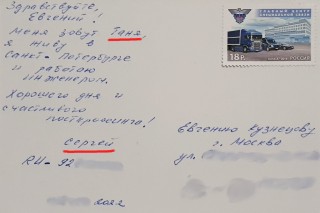 Здравствуйте,
Евгений!
Меня зовут Таня,
я живу в
Санкт-Петербурге
и работаю
инженером.
Хорошего дня и
счастливого
посткроссинга!
Сергей
RU-92
2022
18 Р.
Евгению Кузнецову
г. Москва
ул.